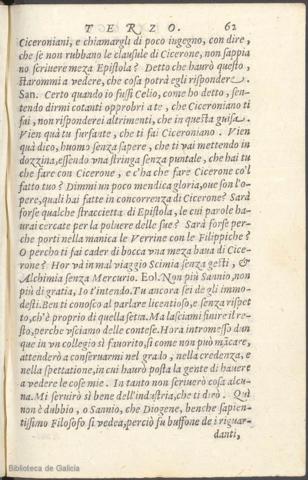 TERZO. 62
Ciceroniani, e chiamargli di poco ingegno, con dire,
che se non rubbano le clausule di Cicerone, non sappia
no scriuere meza Epistola? Detto che haurò questo,
Harommi a vedere, che cosa potrà egli rispondere.
San. Certo quando io fussi Celio, come ho detto, sen-
tendo dirmi cotanti opprobri a te, che Ciceroniano ti
fai, non risponderei altrimenti, che in questa guisa.
Vien quà tu furfante, che ti fai Ciceroniano. Vien
quà dico, huomo senza sapere, che ti vai mettendo in
dozzina, essendo vna stringa senza puntale, che hai tu
che fare con Cicerone, e c'ha che fare Cicerone co'l
fatto tuo? Dimmi un poco mendica gloria, oue son l'o-
pere, quali hai fatte in concorrenza di Cicerone? Sarà
forse qualche straccietta di Epistola, le cui parole ha-
urai cercate per la poluere delle sue? Sarà forse per-
che porti nella manica le Verrine con le Filippiche?
O percho ti fai cader di bocca vna meza baua di Cice-
rone? Hor và in mal viaggio Scimia senza gesti, &
Alchimia senza Mercurio. Eol. Non più Sannio, non
più di gratia, lo t'intendo. Tu ancora sei de gli immo-
desti. Ben ti conosco al parlare licentioso, e senza rispet
to, ch'è proprio di quella setta. Ma lasciami finire il re-
sto, perche vsciamo delle contese. Hora intromesso dun
que in vn collegio sì fauorito, si come non può mãcare,
attenderò a conseruarmi nel grado, nella credenza, e
nella spettatione, in cui haurò posta la gente di hauere
a vedere le cose mie. In tanto non scriuerò cosa alcu-
na. Mi seruirò sì bene dell'industria, che ti dirò. Quì
non è dubbio, o Sannio, che Diogene, benche sapien-
tissimo Filosofo si vedea, perciò fu buffone de i riguar-
danti,
Biblioteca de Galicia